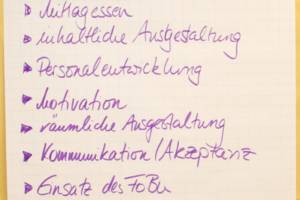 Mittagessen
inhaltliche Ausgestaltung
Personalentwicklung
Motivation
räumliche Ausgestaltung
Kommunikation/Akzeptanz
Einsatz des FoBu